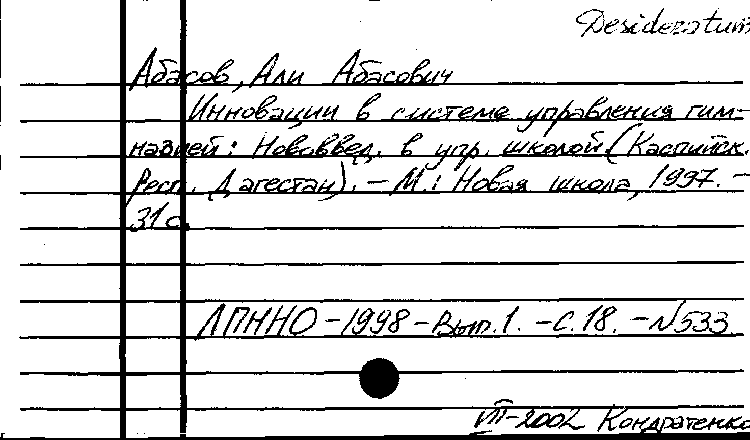 Desideratum
Абасов, Али Абасович
Инновации в системе управления гим-
назией: Нововвед. в упр. школой (Каспийск.
Респ. Дагестан). – М.: Новая школа, 1997. –
31 с.
ЛПННО – 1998 – Вып. 1. – С. 18. – N533
VII-2002 Кондратенко